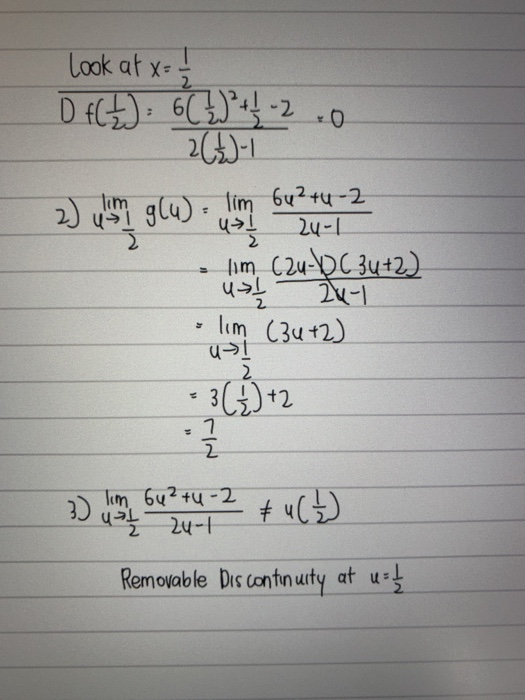 Look at x = 1/2
1) f(1/2) = (6(1/2)² + 1/2 - 2)/(2(1/2) - 1) = 0
2) lim u→1/2 g(u) = lim u→1/2 (6u² + u - 2)/(2u - 1)
= lim u→1/2 (2u - 1)(3u + 2)/(2u - 1)
= lim u→1/2 (3u + 2)
= 3(1/2) + 2
= 7/2
3) lim u→1/2 (6u² + u - 2)/(2u - 1) ≠ u(1/2)
Removable Discontinuity at u = 1/2